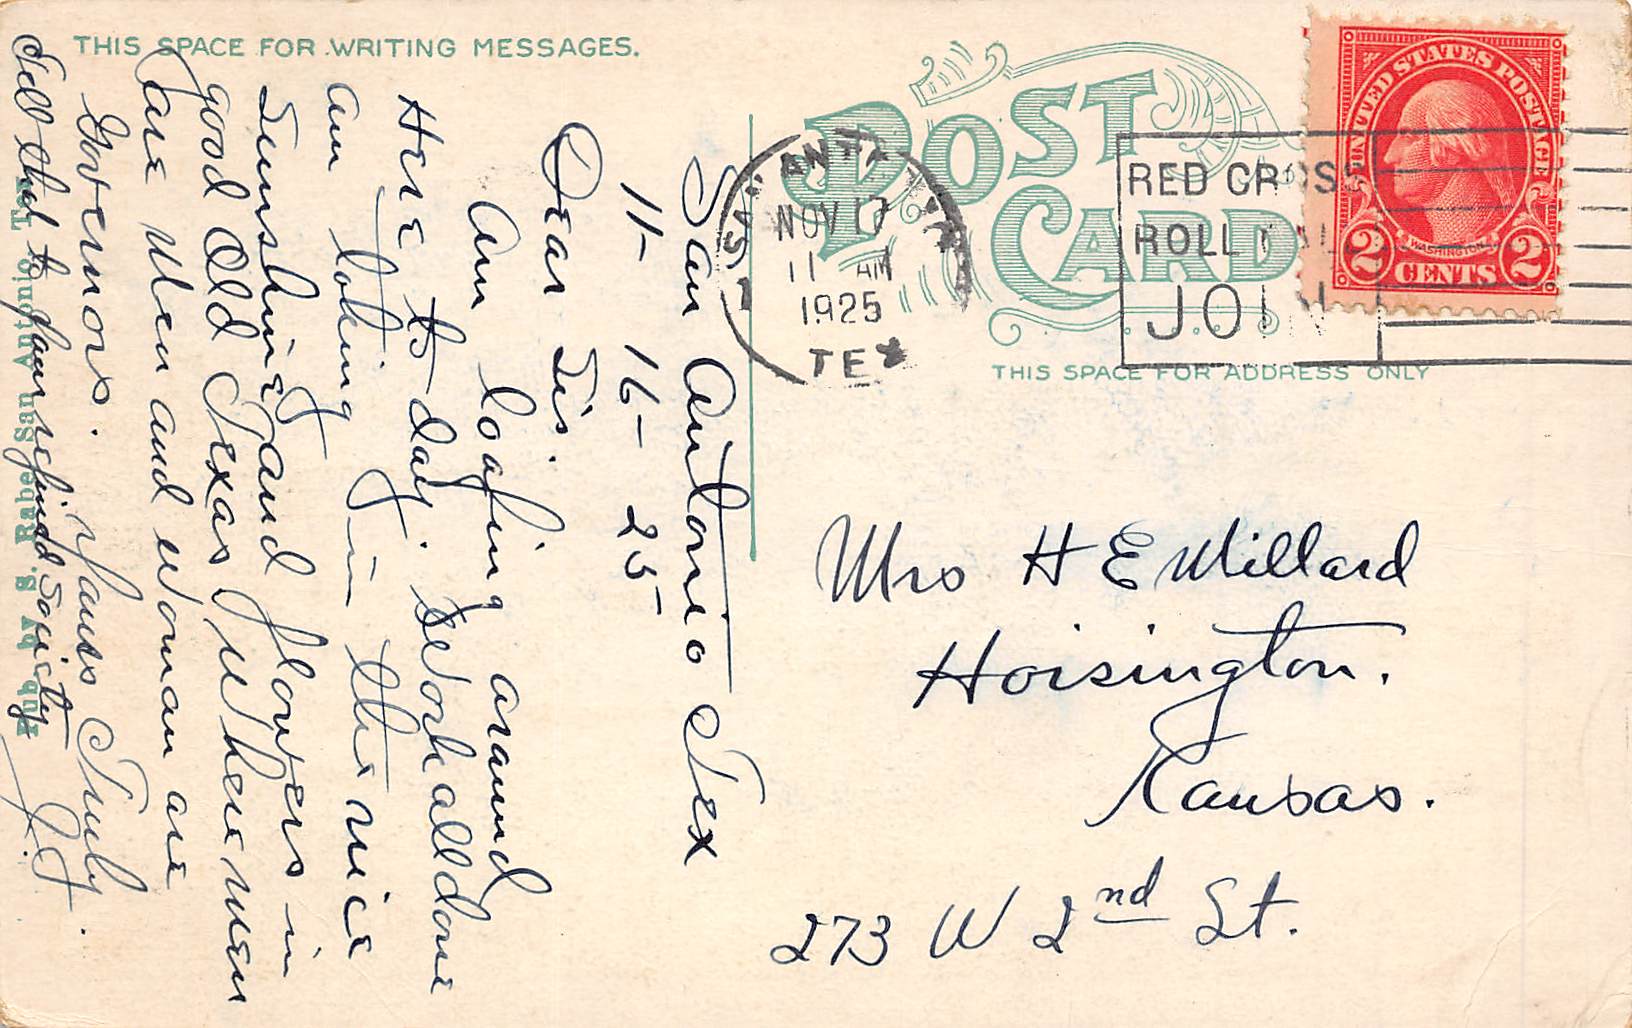 THIS SPACE FOR WRITING MESSAGES.
POST
CARD
THIS SPACE FOR ADDRESS ONLY
SAN ANTONIO
NOV 17
11 AM
1925
TEX
RED CROSS
ROLL CALL
JOIN
UNITED STATES POSTAGE
WASHINGTON
2 CENTS 2
San Antonio Tex
11- 16- 25-
Dear Sis.
Am loafing around
Here to-day. Work all done
am loking in the nice
Sunshine and flowers in
good Old Texas Where men
are Men and Woman are
Governors.
Yours Truly.
Tell that to your society
J.J.
Pub. by S. Rabe San Antonio, Tex.
Mrs H E Millard
Hoisington.
Kansas.
273 W 2nd St.